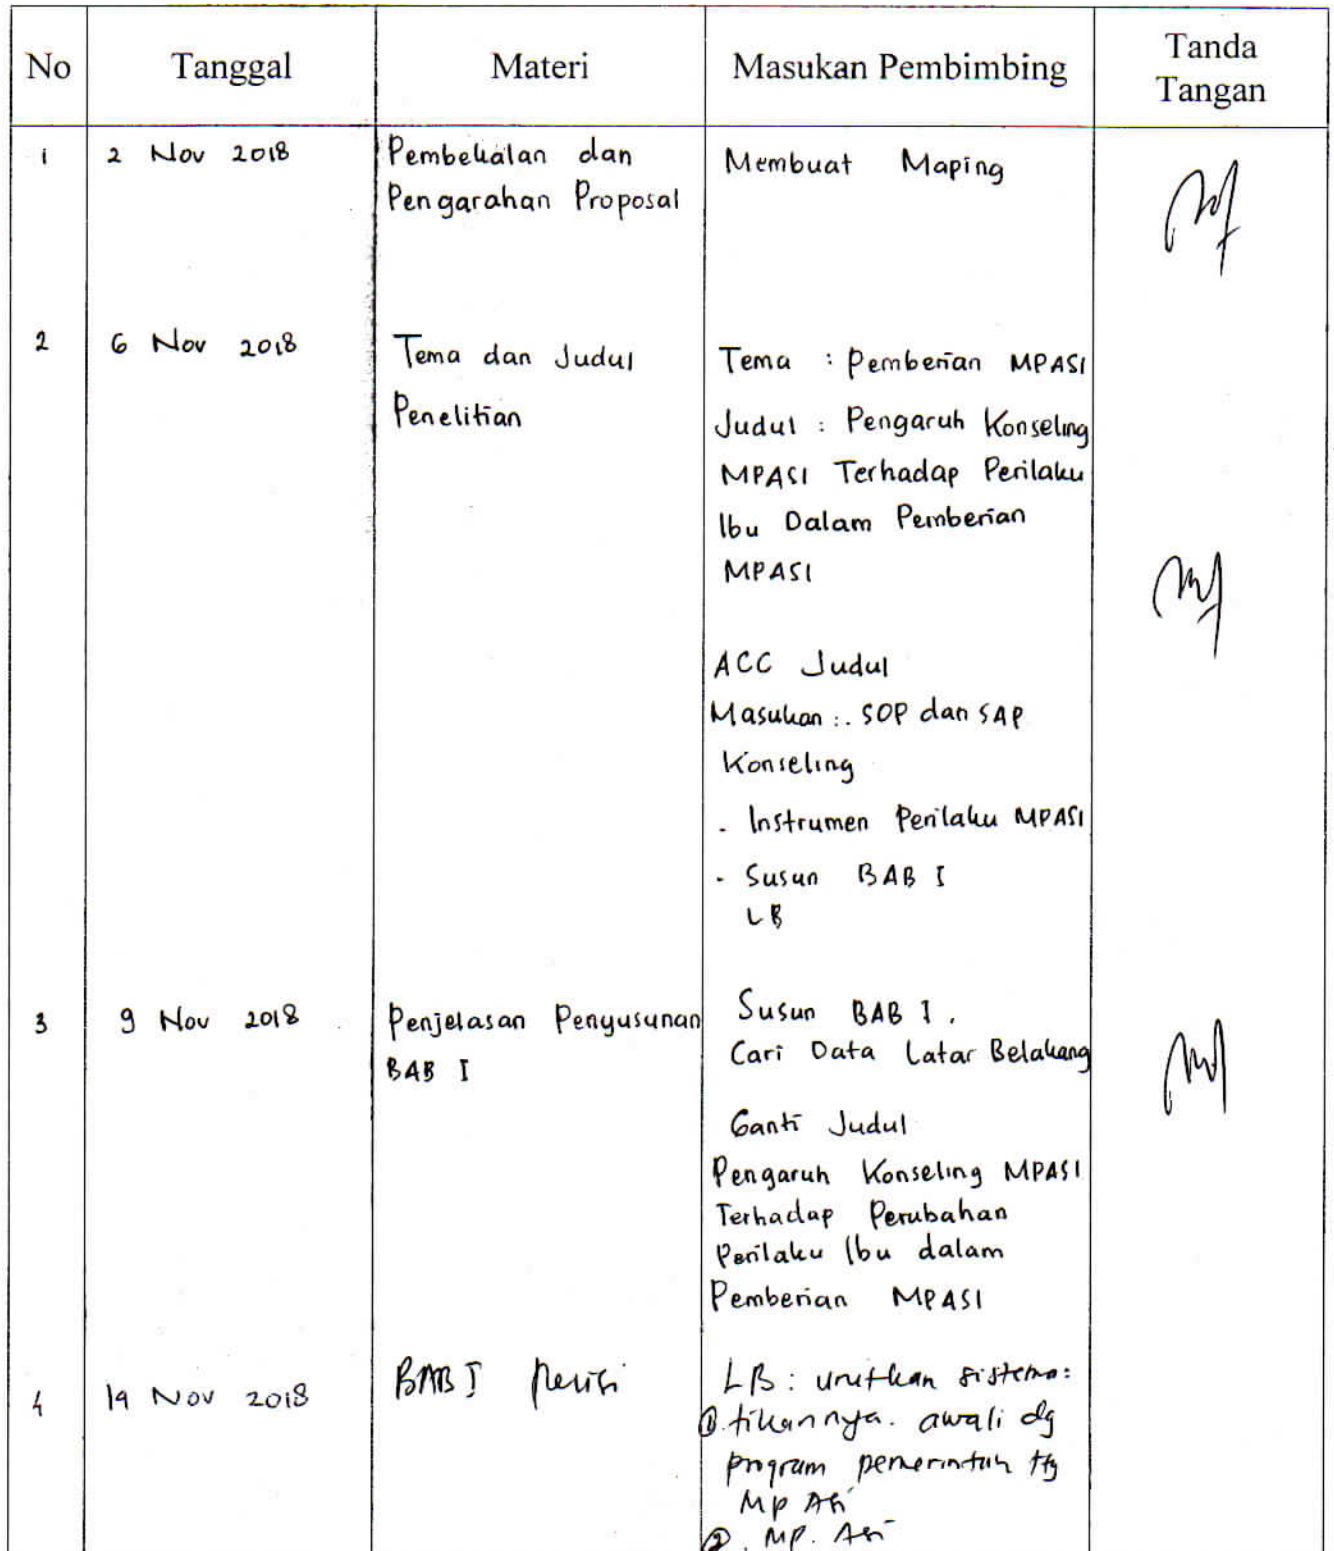 No Tanggal Materi Masukan Pembimbing Tanda Tangan
1 2 Nov 2018 Pembekalan dan Membuat Maping
Pengarahan Proposal
2 6 Nov 2018 Tema dan Judul Tema : Pemberian MPASI
Penelitian Judul : Pengaruh Konseling
MPASI Terhadap Perilaku
Ibu Dalam Pemberian
MPASI
ACC Judul
Masukan : . SOP dan SAP
Konseling
- Instrumen Perilaku MPASI
- Susun BAB I
LB
3 9 Nov 2018 Penjelasan Penyusunan Susun BAB I .
BAB I Cari Data Latar Belakang
Ganti Judul
Pengaruh Konseling MPASI
Terhadap Perubahan
Perilaku Ibu dalam
Pemberian MPASI
4 14 Nov 2018 BAB I Revisi LB : urutkan sistema:
① tikannya. awali dg
program pemerintah ttg
MP ASi
② . MP. Asi